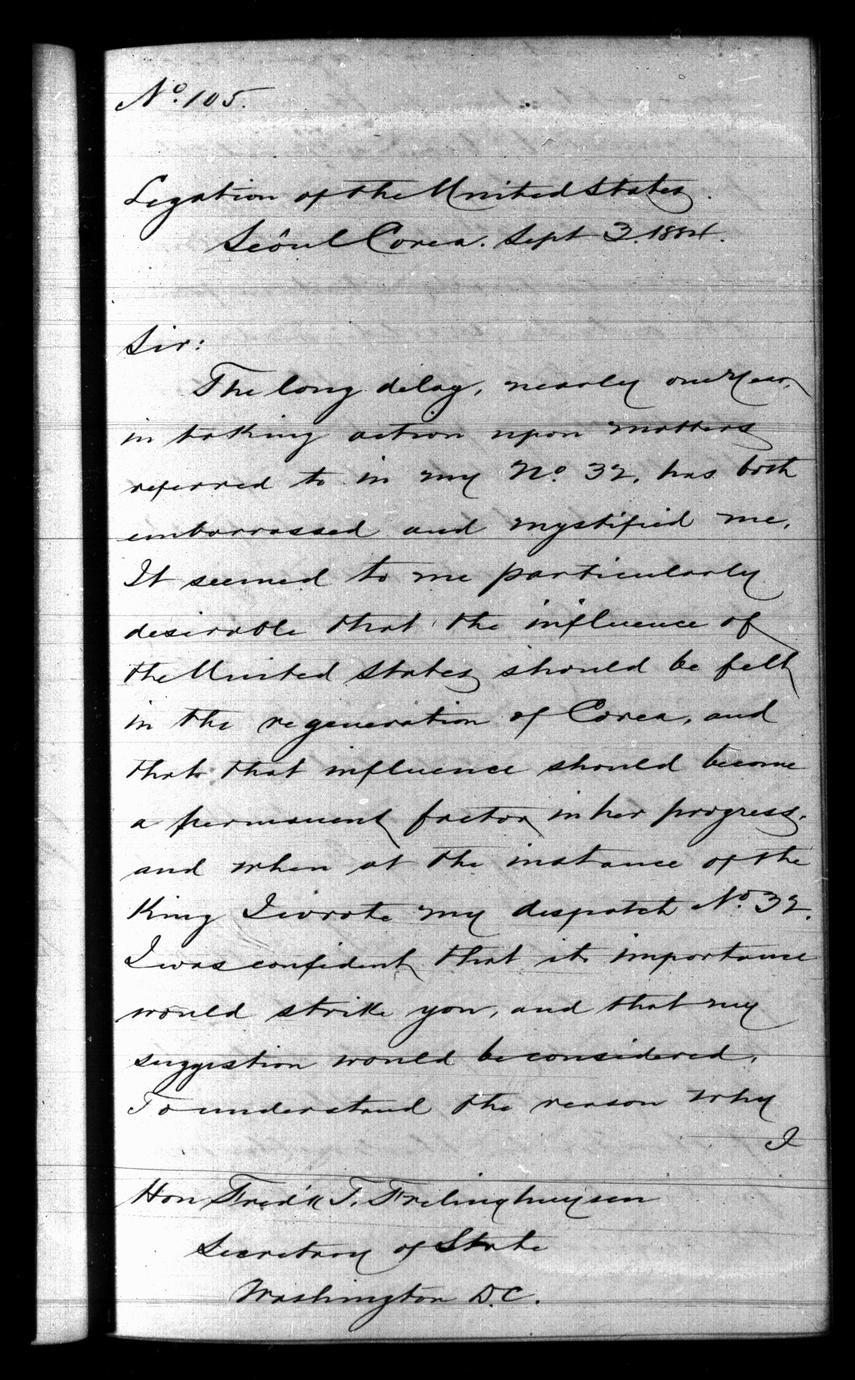 No. 105.
Legation of the United States.
Seoul Corea. Sept 3. 1884.
Sir:
The long delay, nearly one Year,
in taking action upon matters
referred to in my No. 32, has both
embarrassed and mystified me.
It seemed to me particularly
desirable that the influence of
the United States should be felt
in the regeneration of Corea, and
that that influence should become
a permanent factor in her progress,
and when at the instance of the
King I wrote my despatch No. 32.
I was confident that its importance
would strike you, and that my
suggestion would be considered.
To understand the reason why
I
Hon Fred'k T. Frelinghuysen
Secretary of State
Washington D.C.